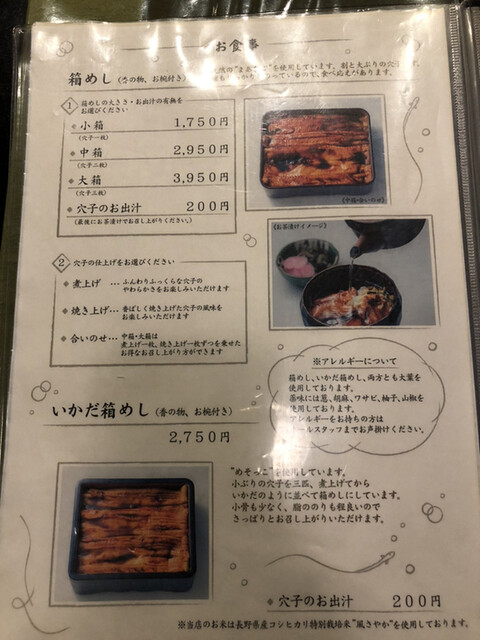 お食事
箱めし（香の物、お椀付き）
を使用しています。割と大ぶりの穴子
ているので、食べ応えがあります。
1 箱めしの大きさ・お出汁の有無を
お選びください
小箱 1,750円
（穴子一枚）
中箱 2,950円
（穴子二枚）
大箱 3,950円
（穴子三枚）
穴子のお出汁 200円
（最後にお茶漬けでお召し上がりください。）
（中箱・合いのせ）
（お茶漬けイメージ）
2 穴子の仕上げをお選びください
煮上げ …ふんわりふっくらな穴子の
やわらかさをお楽しみいただけます
焼き上げ…香ばしく焼き上げた穴子の風味を
お楽しみいただけます
合いのせ…中箱・大箱は
煮上げ一枚、焼き上げ一枚ずつを乗せた
お得なお召し上がり方ができます
※アレルギーについて
箱めし、いかだ箱めし、両方とも大葉を
使用しております。
薬味には葱、胡麻、ワサビ、柚子、山椒を
使用しております。
アレルギーをお持ちの方は
ホールスタッフまでお声掛けください。
いかだ箱めし（香の物、お椀付き）
2,750円
“めそっこ”を使用しています。
小ぶりの穴子を三匹、煮上げてから
いかだのように並べて箱めしにしています。
小骨も少なく、脂ののりも程良いので
さっぱりとお召し上がりいただけます。
穴子のお出汁 200円
※当店のお米は長野県産コシヒカリ特別栽培米“風さやか”を使用しております。